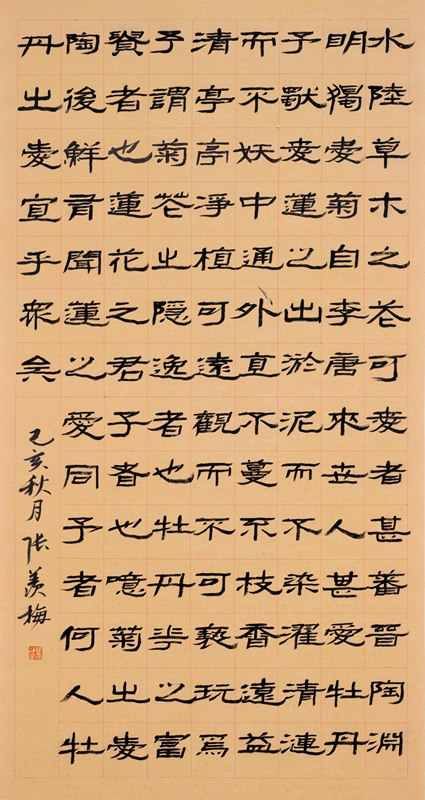 水陸草木之花可愛者甚蕃晉陶淵
明獨愛菊自李唐來世人甚愛牡丹
予獨愛蓮之出於泥而不染濯清漣
而不妖中通外直不蔓不枝香遠益
清亭亭凈植可遠觀而不可褻玩焉
予謂菊花之隱逸者也牡丹華之富
貴者也蓮花之君子者也噫菊之愛
陶後鮮有聞蓮之愛同予者何人牡
丹之愛宜乎眾矣
己亥秋月張羨梅